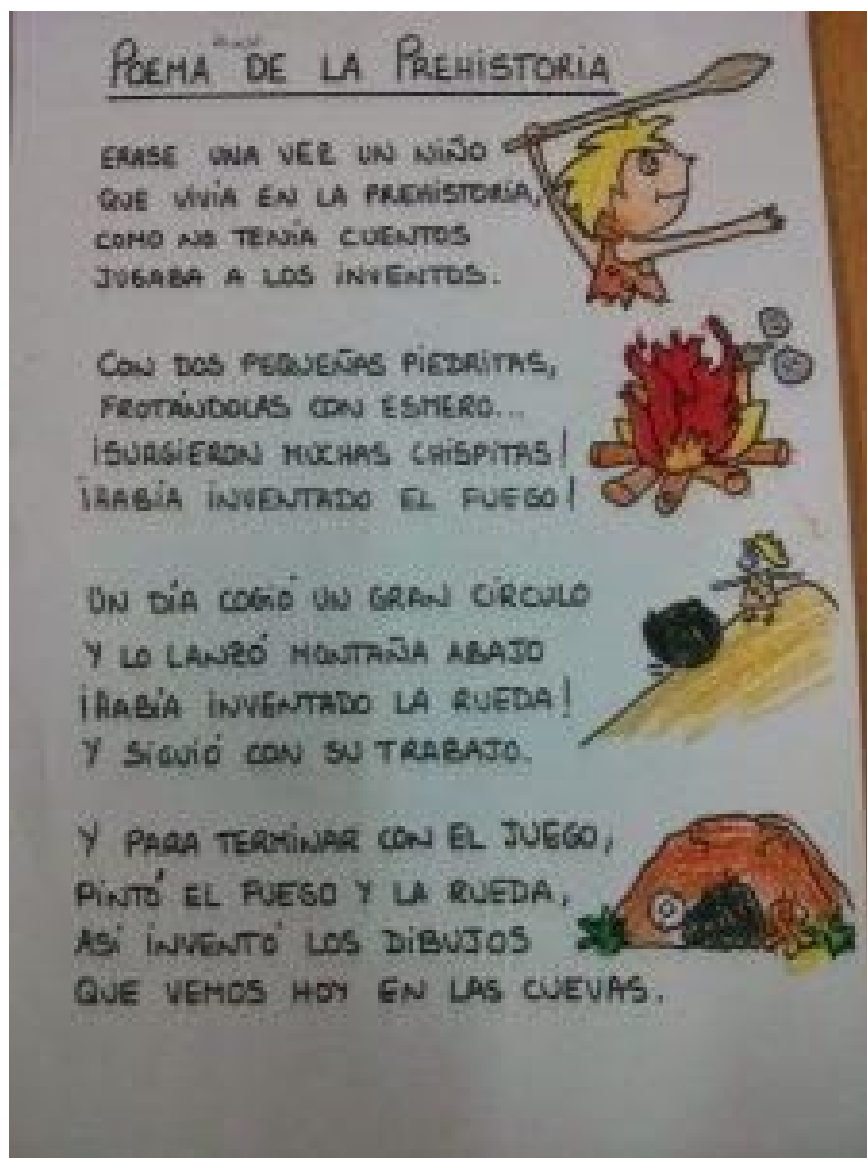 POEMA DE LA PREHISTORIA
ERASE UNA VEZ UN NIÑO
QUE VIVÍA EN LA PREHISTORIA,
COMO NO TENÍA CUENTOS
JUGABA A LOS INVENTOS.
CON DOS PEQUEÑAS PIEDRITAS,
FROTÁNDOLAS CON ESMERO...
¡SURGIERON MUCHAS CHISPITAS!
¡HABÍA INVENTADO EL FUEGO!
UN DÍA COGIÓ UN GRAN CÍRCULO
Y LO LANZÓ MONTAÑA ABAJO
¡HABÍA INVENTADO LA RUEDA!
Y SIGUIÓ CON SU TRABAJO.
Y PARA TERMINAR CON EL JUEGO,
PINTÓ EL FUEGO Y LA RUEDA,
ASÍ INVENTÓ LOS DIBUJOS
QUE VEMOS HOY EN LAS CUEVAS.